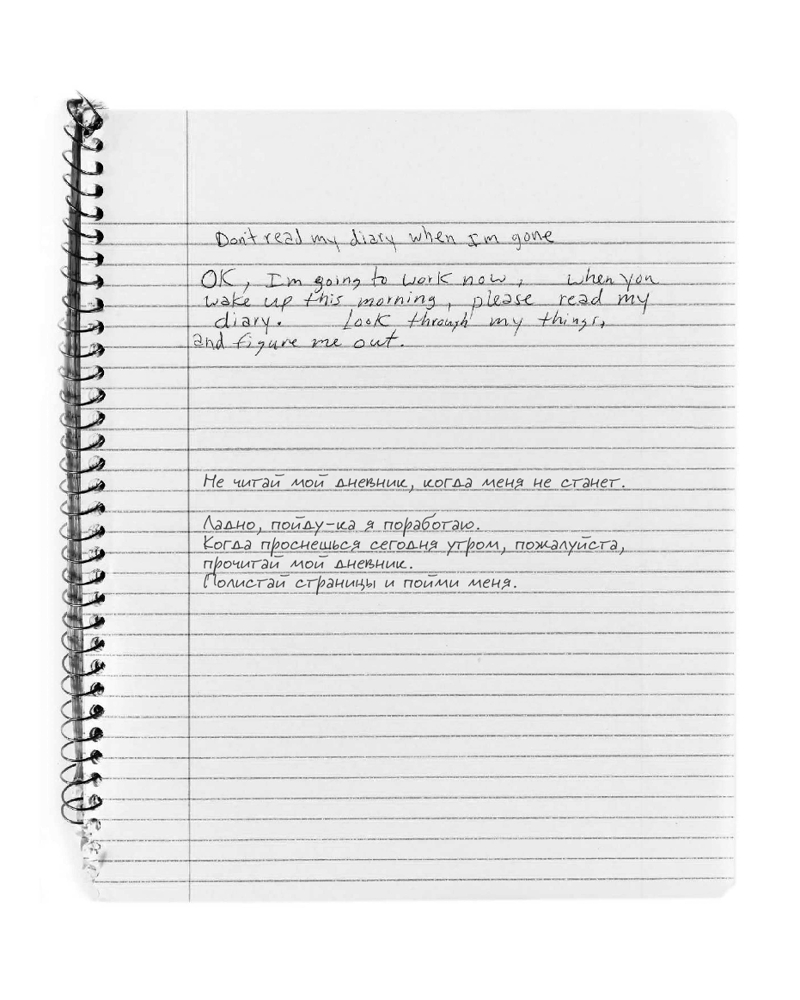 Don't read my diary when I'm gone
OK, I'm going to work now, when you
wake up this morning, please read my
diary. Look through my things,
and figure me out.
Не читай мой дневник, когда меня не станет.
Ладно, пойду-ка я поработаю.
Когда проснешься сегодня утром, пожалуйста,
прочитай мой дневник.
Полистай страницы и пойми меня.